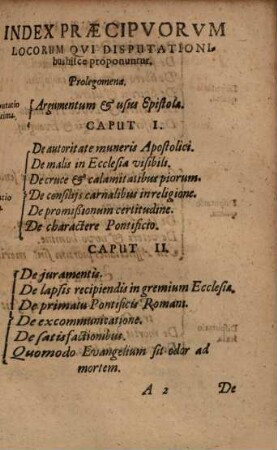 INDEX PRÆCIPVORVM
LOCORUM QVI DISPUTATIONI-
bus hisce proponuntur.
Prolegomena.
Argumentum & usus Epistolæ.
CAPUT I.
De autoritate muneris Apostolici.
De malis in Ecclesia visibili.
De cruce & calamitatibus piorum.
De consilijs carnalibus in religione.
De promissionum certitudine.
De charactere Pontificio.
CAPUT II.
De juramentis.
De lapsis recipiendis in gremium Ecclesiæ.
De primatu Pontificis Romani.
De excommunicatione.
De satisfactionibus.
Quomodo Evangelium sit odor ad
mortem.
A 2 De